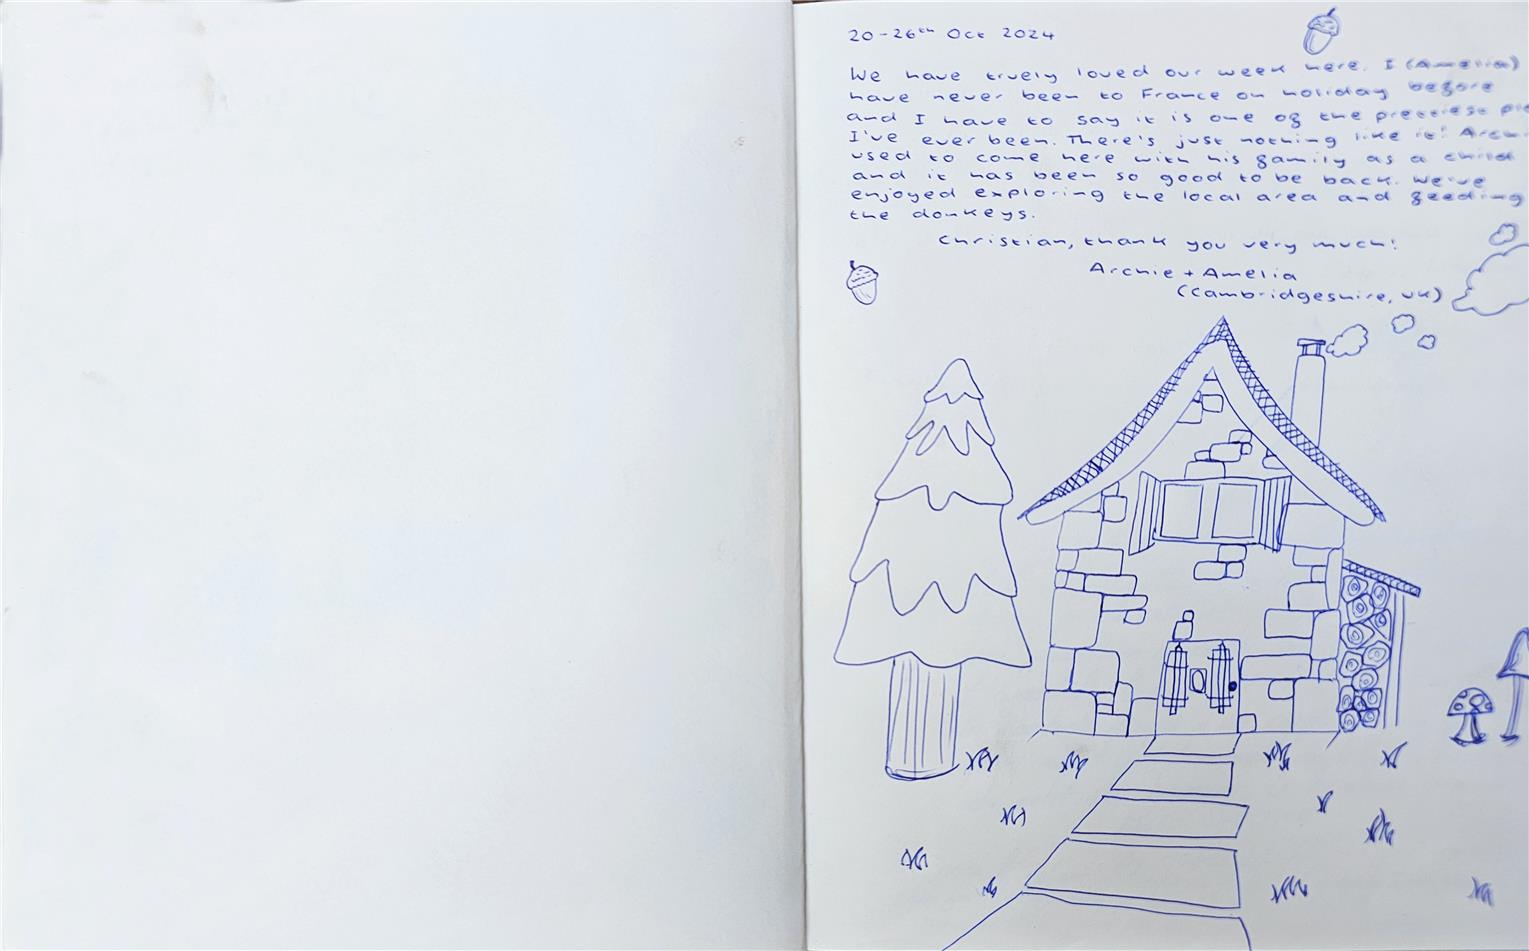 20-26th Oct 2024
We have truely loved our week here. I (Amelia)
have never been to France on holiday before
and I have to say it is one of the prettiest
I've ever been. There's just nothing like it! Archie
used to come here with his family as a child
and it has been so good to be back. We've
enjoyed exploring the local area and feeding
the donkeys.
Christian, thank you very much!
Archie + Amelia
(Cambridgeshire, UK)